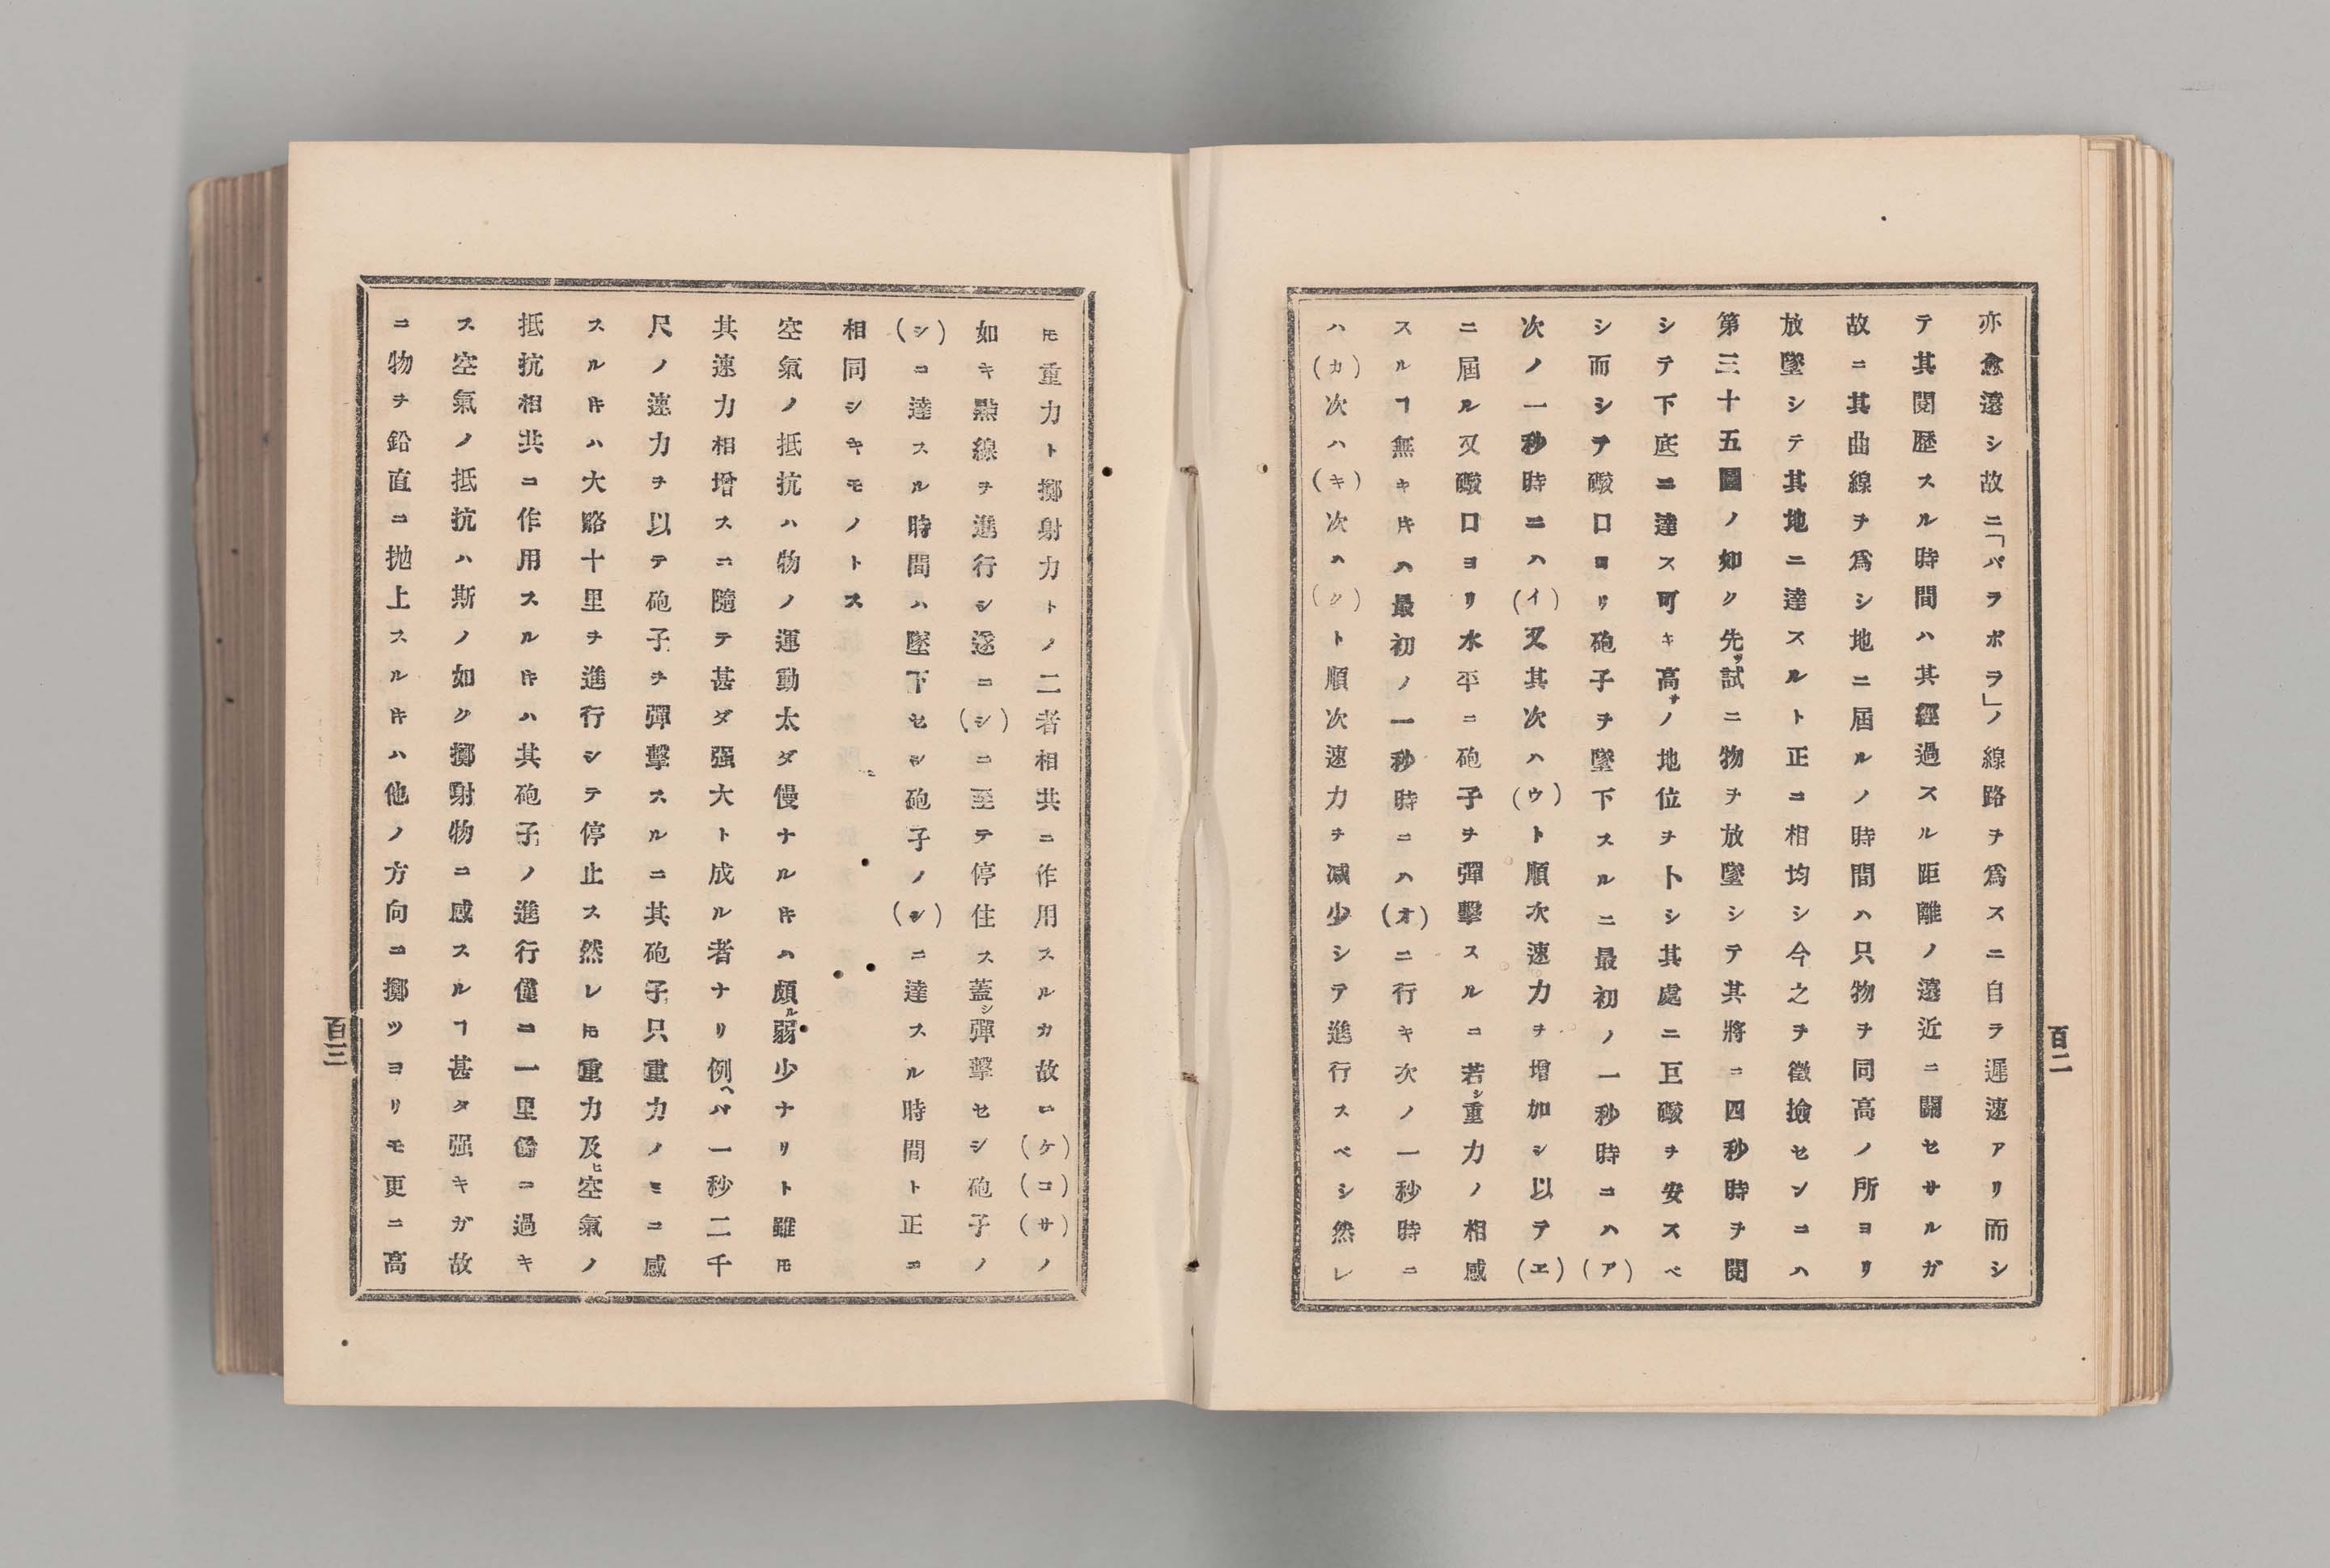 亦愈遠シ故ニ「パラボラ」ノ線路ヲ爲スニ自ラ遲速アリ而シ
テ其閱歷スル時間ハ其經過スル距離ノ遠近ニ關セサルガ
故ニ其曲線ヲ爲シ地ニ屆ルノ時間ハ只物ヲ同高ノ所ヨリ
放墜シテ其地ニ達スルト正ニ相均シ今之ヲ徵撿センニハ
第三十五圖ノ如ク先ヅ試ニ物ヲ放墜シテ其將ニ四秒時ヲ閱
シテ下底ニ達ス可キ高サノ地位ヲトシ其處ニ巨礮ヲ安スベ
シ而シテ礮口ヨリ砲子ヲ墜下スルニ最初ノ一秒時ニハ(ア)
次ノ一秒時ニハ(イ)又其次ハ(ウ)ト順次速力ヲ增加シ以テ(エ)
ニ屆ル又礮口ヨリ水平ニ砲子ヲ彈擊スルニ若シ重力ノ相感
スルヿ無キ𪜈ハ最初ノ一秒時ニハ(オ)ニ行キ次ノ一秒時ニ
ハ(カ)次ハ(キ)次ハ(ク)ト順次速力ヲ減少シテ進行スベシ然レ
百二
𪜈重力ト擲射力トノ二者相共ニ作用スルカ故ニ(ケ)(コ)(サ)ノ
如キ點線ヲ進行シ遂ニ(シ)ニ至テ停住ス蓋シ彈擊セシ砲子ノ
(シ)ニ達スル時間ハ墜下セシ砲子ノ(エ)ニ達スル時間ト正ニ
相同シキモノトス
空氣ノ抵抗ハ物ノ運動太ダ慢ナルキハ頗ル弱少ナリト雖𪜈
其速力相增スニ隨テ甚ダ强大ト成ル者ナリ例ヘバ一秒二千
尺ノ速力ヲ以テ砲子ヲ彈擊スルニ其砲子只重力ノミニ感
スルキハ大略十里ヲ進行シテ停止ス然レ𪜈重力及ヒ空氣ノ
抵抗相共ニ作用スルキハ其砲子ノ進行僅ニ一里餘ニ過キ
ス空氣ノ抵抗ハ斯ノ如ク擲射物ニ感スルヿ甚タ强キガ故
ニ物ヲ鉛直ニ抛上スルキハ他ノ方向ニ擲ツヨリモ更ニ高
百三